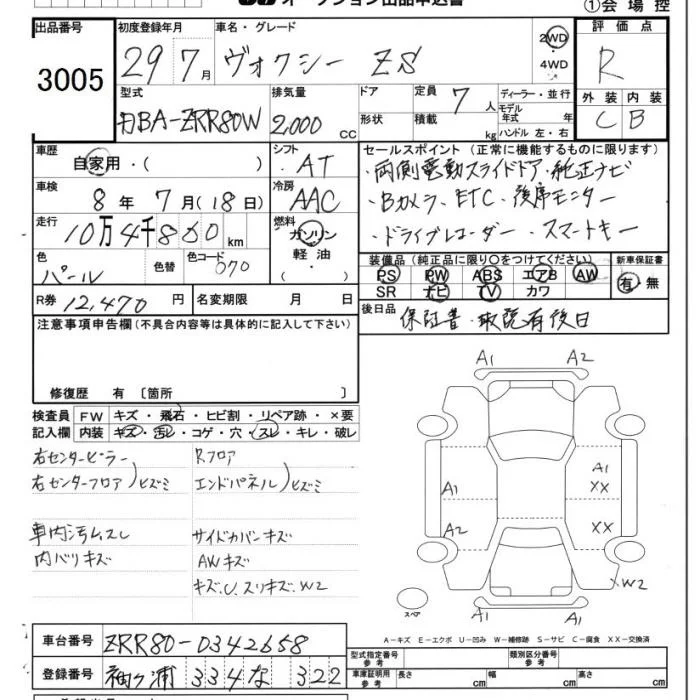 オークション出品申込書
①会場控
出品番号 初度登録年月 車名・グレード 評価点
3005 29年7月 ヴォクシー ZS 2WD・4WD R
型式 排気量 ドア 定員 ディーラー・並行 外装 内装
DBA-ZRR80W 2,000 CC 形状 積載 7人 kg モデル年式 年 ハンドル 左・右 C B
車歴 シフト セールスポイント(正常に機能するものに限ります)
自家用・( ) AT ・両側電動スライドドア・純正ナビ
車検 冷房
8年7月(18日) AAC ・Bカメラ・ETC・後席モニター
走行 燃料
10万4千860km ガソリン・軽油・( ) ・ドライブレコーダー・スマートキー
色 色替 色コード 装備品(純正品に限り○をつけてください) 新車保証書
パール 070 PS PW ABS エアB AW 有・無
SR ナビ TV カワ
R券 12,470円 名変期限 月 日
後日品 保証書・取説有後日
注意事項申告欄(不具合内容等は具体的に記入して下さい)
修復歴 有〔箇所 〕
検査員 FW キズ・飛石・ヒビ割・リペア跡・×要
記入欄 内装 キズ・汚レ・コゲ・穴・スレ・キレ・破レ
右センターピラー Rフロア
右センターフロア)ヒズミ エンドパネル)ヒズミ
車内汚ムスレ サイドカバンキズ
内バリキズ AWキズ
キズ、U、スリキズ、W2
A1 A2
A1 A1 XX
A2 XX
XW2
A1
スペア
A-キズ E-エクボ U-凹み W-補修跡 S-サビ C-腐食 XX-交換済
車台番号 ZRR80-0342658
型式指定番号 参考 類別区分番号 参考
登録番号 袖ヶ浦 334 な 322
車庫証明用 参考 長さ cm 幅 cm 高さ cm